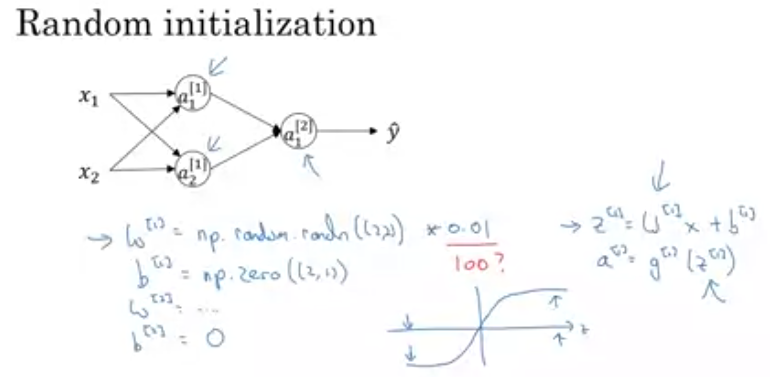 Random initialization
x₁
a₁^[1]
x₂
a₂^[1]
a₁^[2]
ŷ
→ W^[1] = np.random.randn((2,2)) * 0.01
100?
b^[1] = np.zero((2,1))
W^[2] = ...
b^[2] = 0
→ z^[1] = W^[1] x + b^[1]
a^[1] = g^[1](z^[1])
z